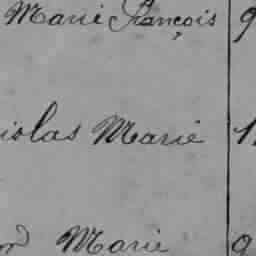 Marie François 9
islas Marie 1
Marie 9